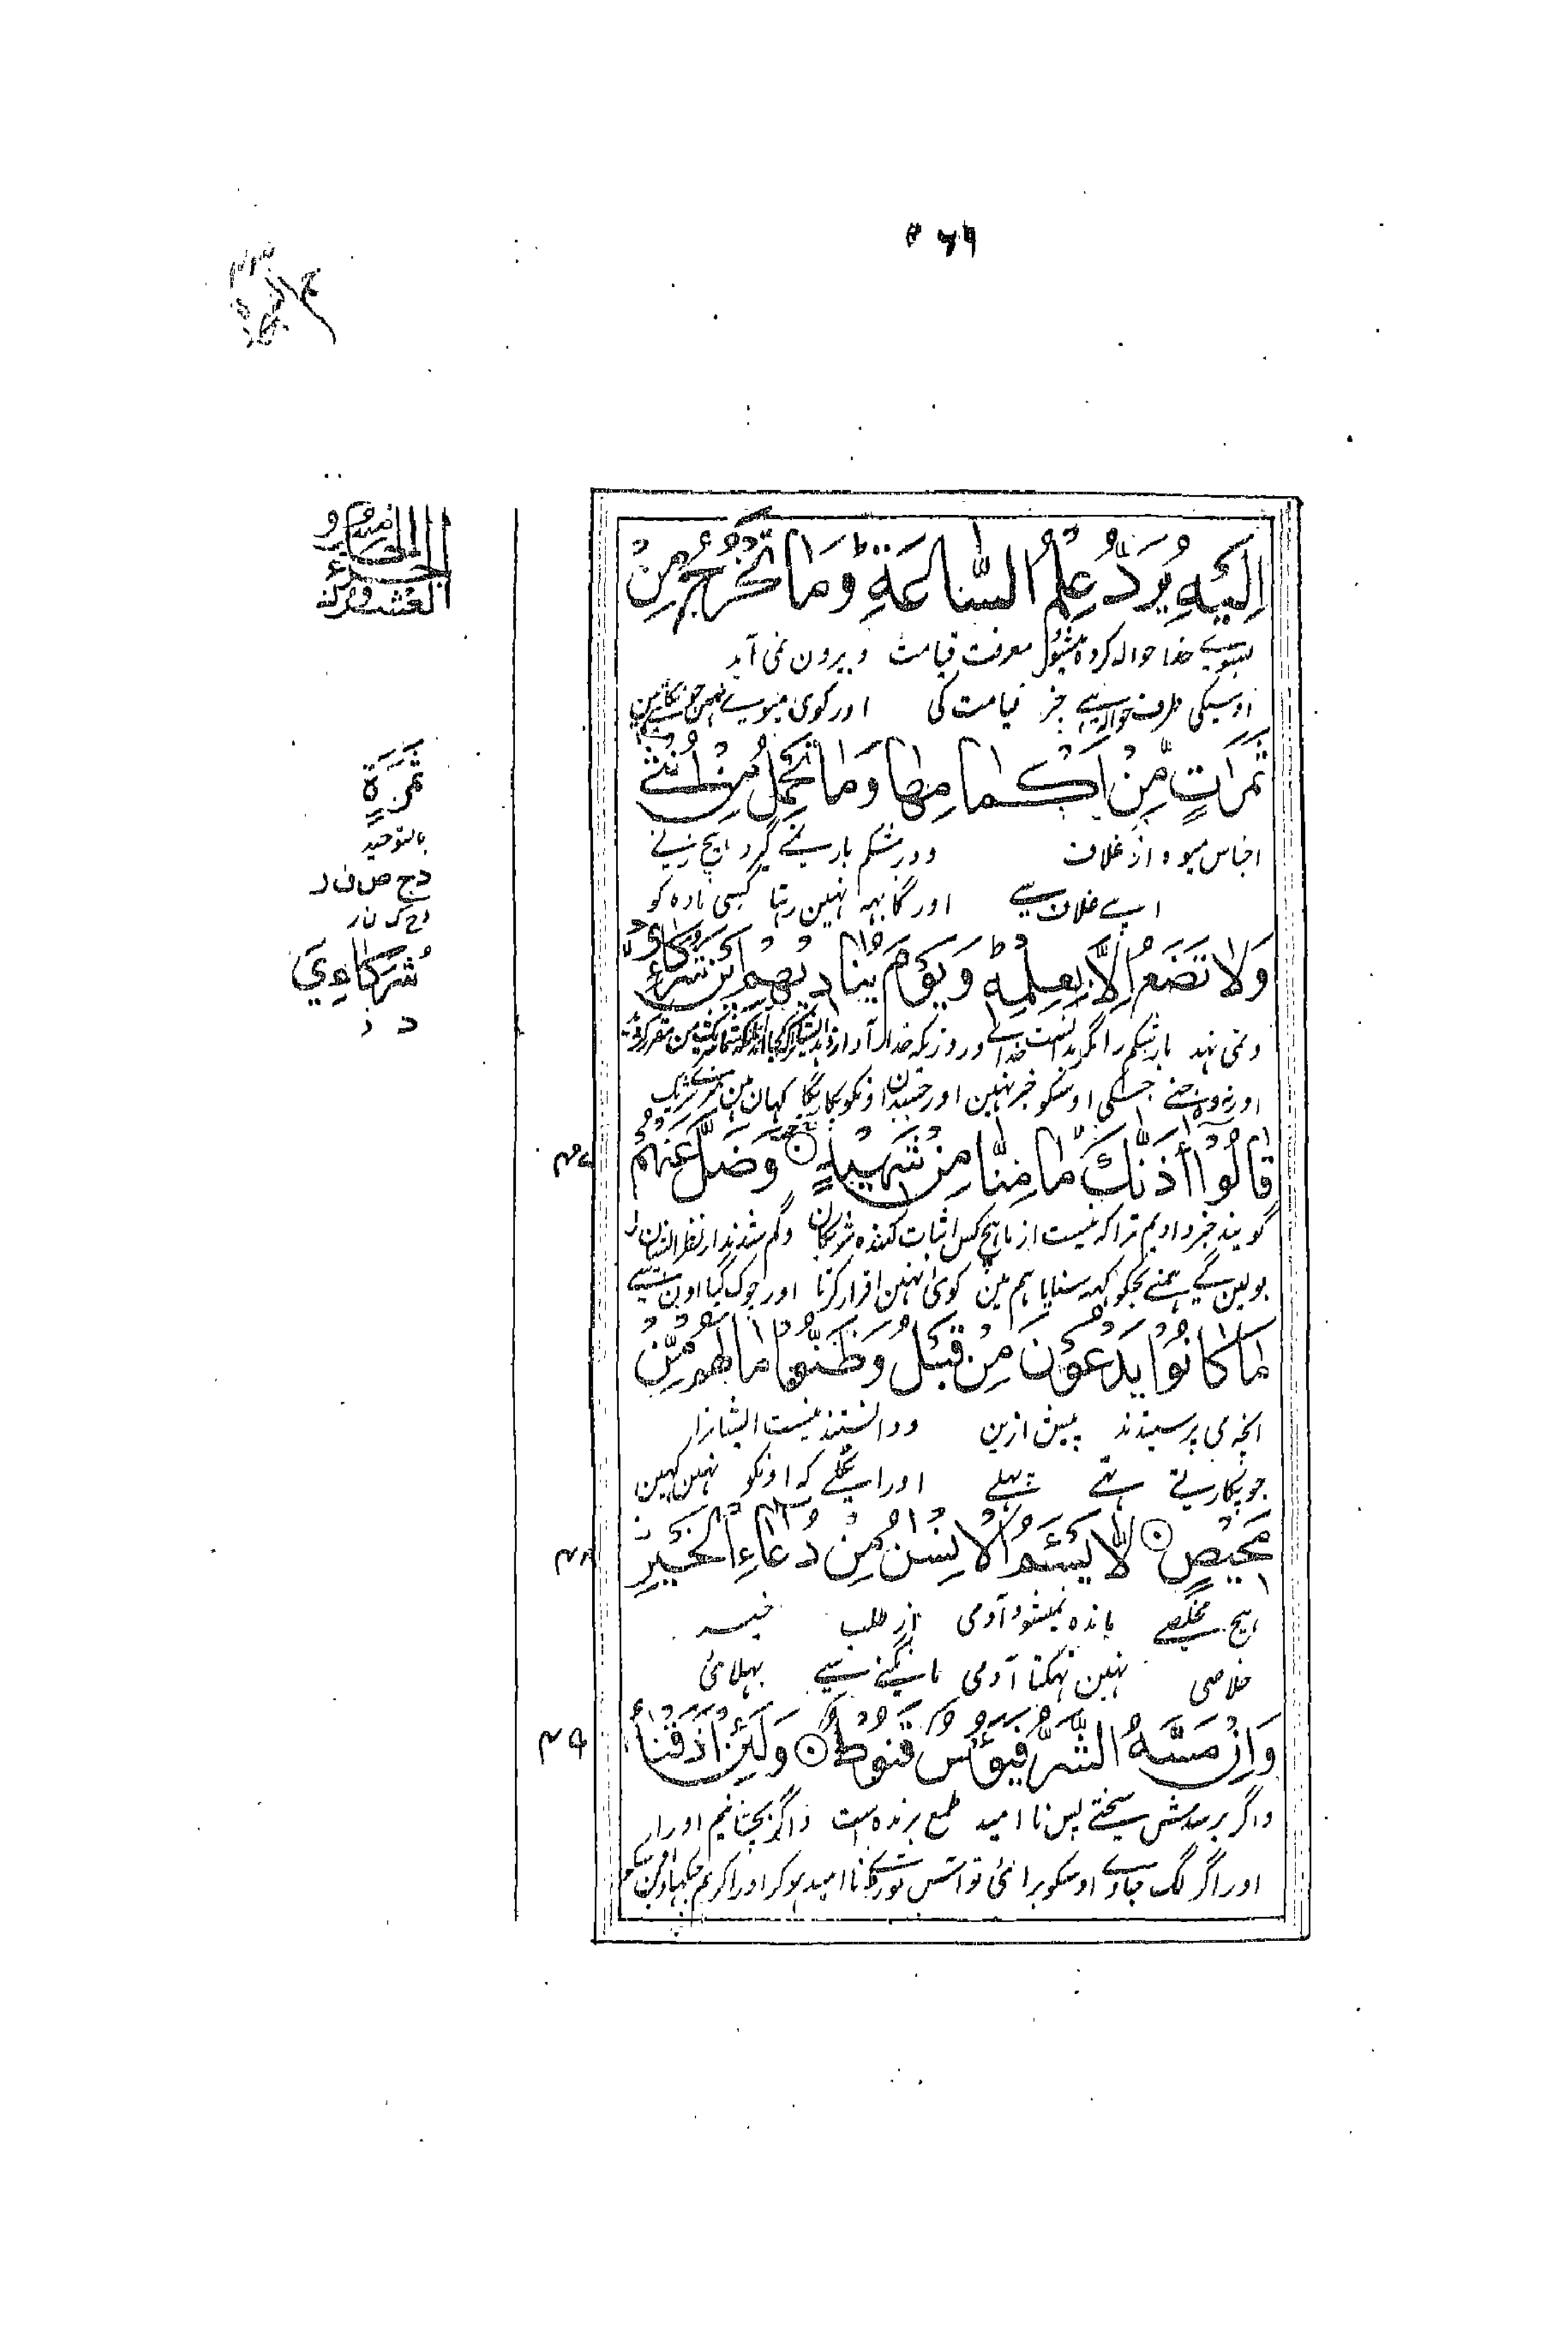 ۴۶۹
الجزء الخامس و
العشرون
اِلَيْهِ يُرَدُّ عِلْمُ السَّاعَةِ ؕ وَمَا تَخْرُجُ مِنْ
بسوے خدا حواله کرده میشود معرفت قیامت و بیرون نمی آید
اوسیکی طرف حواله ہے خبر قیامت کی اور کوی میوے نہین جو نکلتے ہین
ثَمَرَاتٍ مِّنْ اَكْمَامِهَا وَمَا تَحْمِلُ مِنْ اُنْثٰى
اجناس میوه از غلاف و در شکم بار نمے گیرد هیچ زنے
اپنے غلاف سے اور گابہہ نہین رہتا کسی ماده کو
وَلَا تَضَعُ اِلَّا بِعِلْمِهٖ ؕ وَيَوْمَ يُنَادِيْهِمْ اَيْنَ شُرَكَاءِيْ
و نمی نهد بار شکم را مگر بدانست خداے و روزیکه خدا آواز دهد
اور نہ وہ جنے جسکی اوسکو خبر نہین اور جسدن اونکو پکاریگا کہان ہین میرے شریک
قَالُوْا اٰذَنّٰكَ مَا مِنَّا مِنْ شَهِيْدٍ ۝ وَضَلَّ عَنْهُمْ
۴۷
گویند خبر دادیم ترا که نیست از ما هیچ کس اثبات کننده شریکان و گم شدند از نظر ایشان
بولین گے ہمنے تجکو کہہ سنایا ہم مین کوئ نہین اقرار کرتا اور چوک گیا اون سے
مَّا كَانُوْا يَدْعُوْنَ مِنْ قَبْلُ وَظَنُّوْا مَا لَهُمْ مِّنْ
انچه می پرستیدند پیش ازین و دانستند نیست ایشانرا
جو پکارتے تہے پہلے اور اٹکلے کہ اونکو نہین کہین
مَّحِيْصٍ ۝ لَا يَسْـَٔمُ الْاِنْسٰنُ مِنْ دُعَاءِ الْخَيْرِ
۴۸
هیچ مخلصے مانده نمیشود آدمی از طلب خیر
خلاصی نہین تہکتا آدمی مانگنے سے بہلائ
وَاِنْ مَّسَّهُ الشَّرُّ فَيَـُٔوْسٌ قَنُوْطٌ ۝ وَلَئِنْ اَذَقْنٰهُ
۴۹
و اگر برسدش سختے پس نا امید طمع برنده است و اگر بچشانیم اورا
اور اگر لگ جاوے اوسکو برائ تو آس توڑے نا امید ہوکر اور اگر ہم چکہاوین
ثَمَرَةٍ
بالتوحید
شُرَكَاءِيَ
د